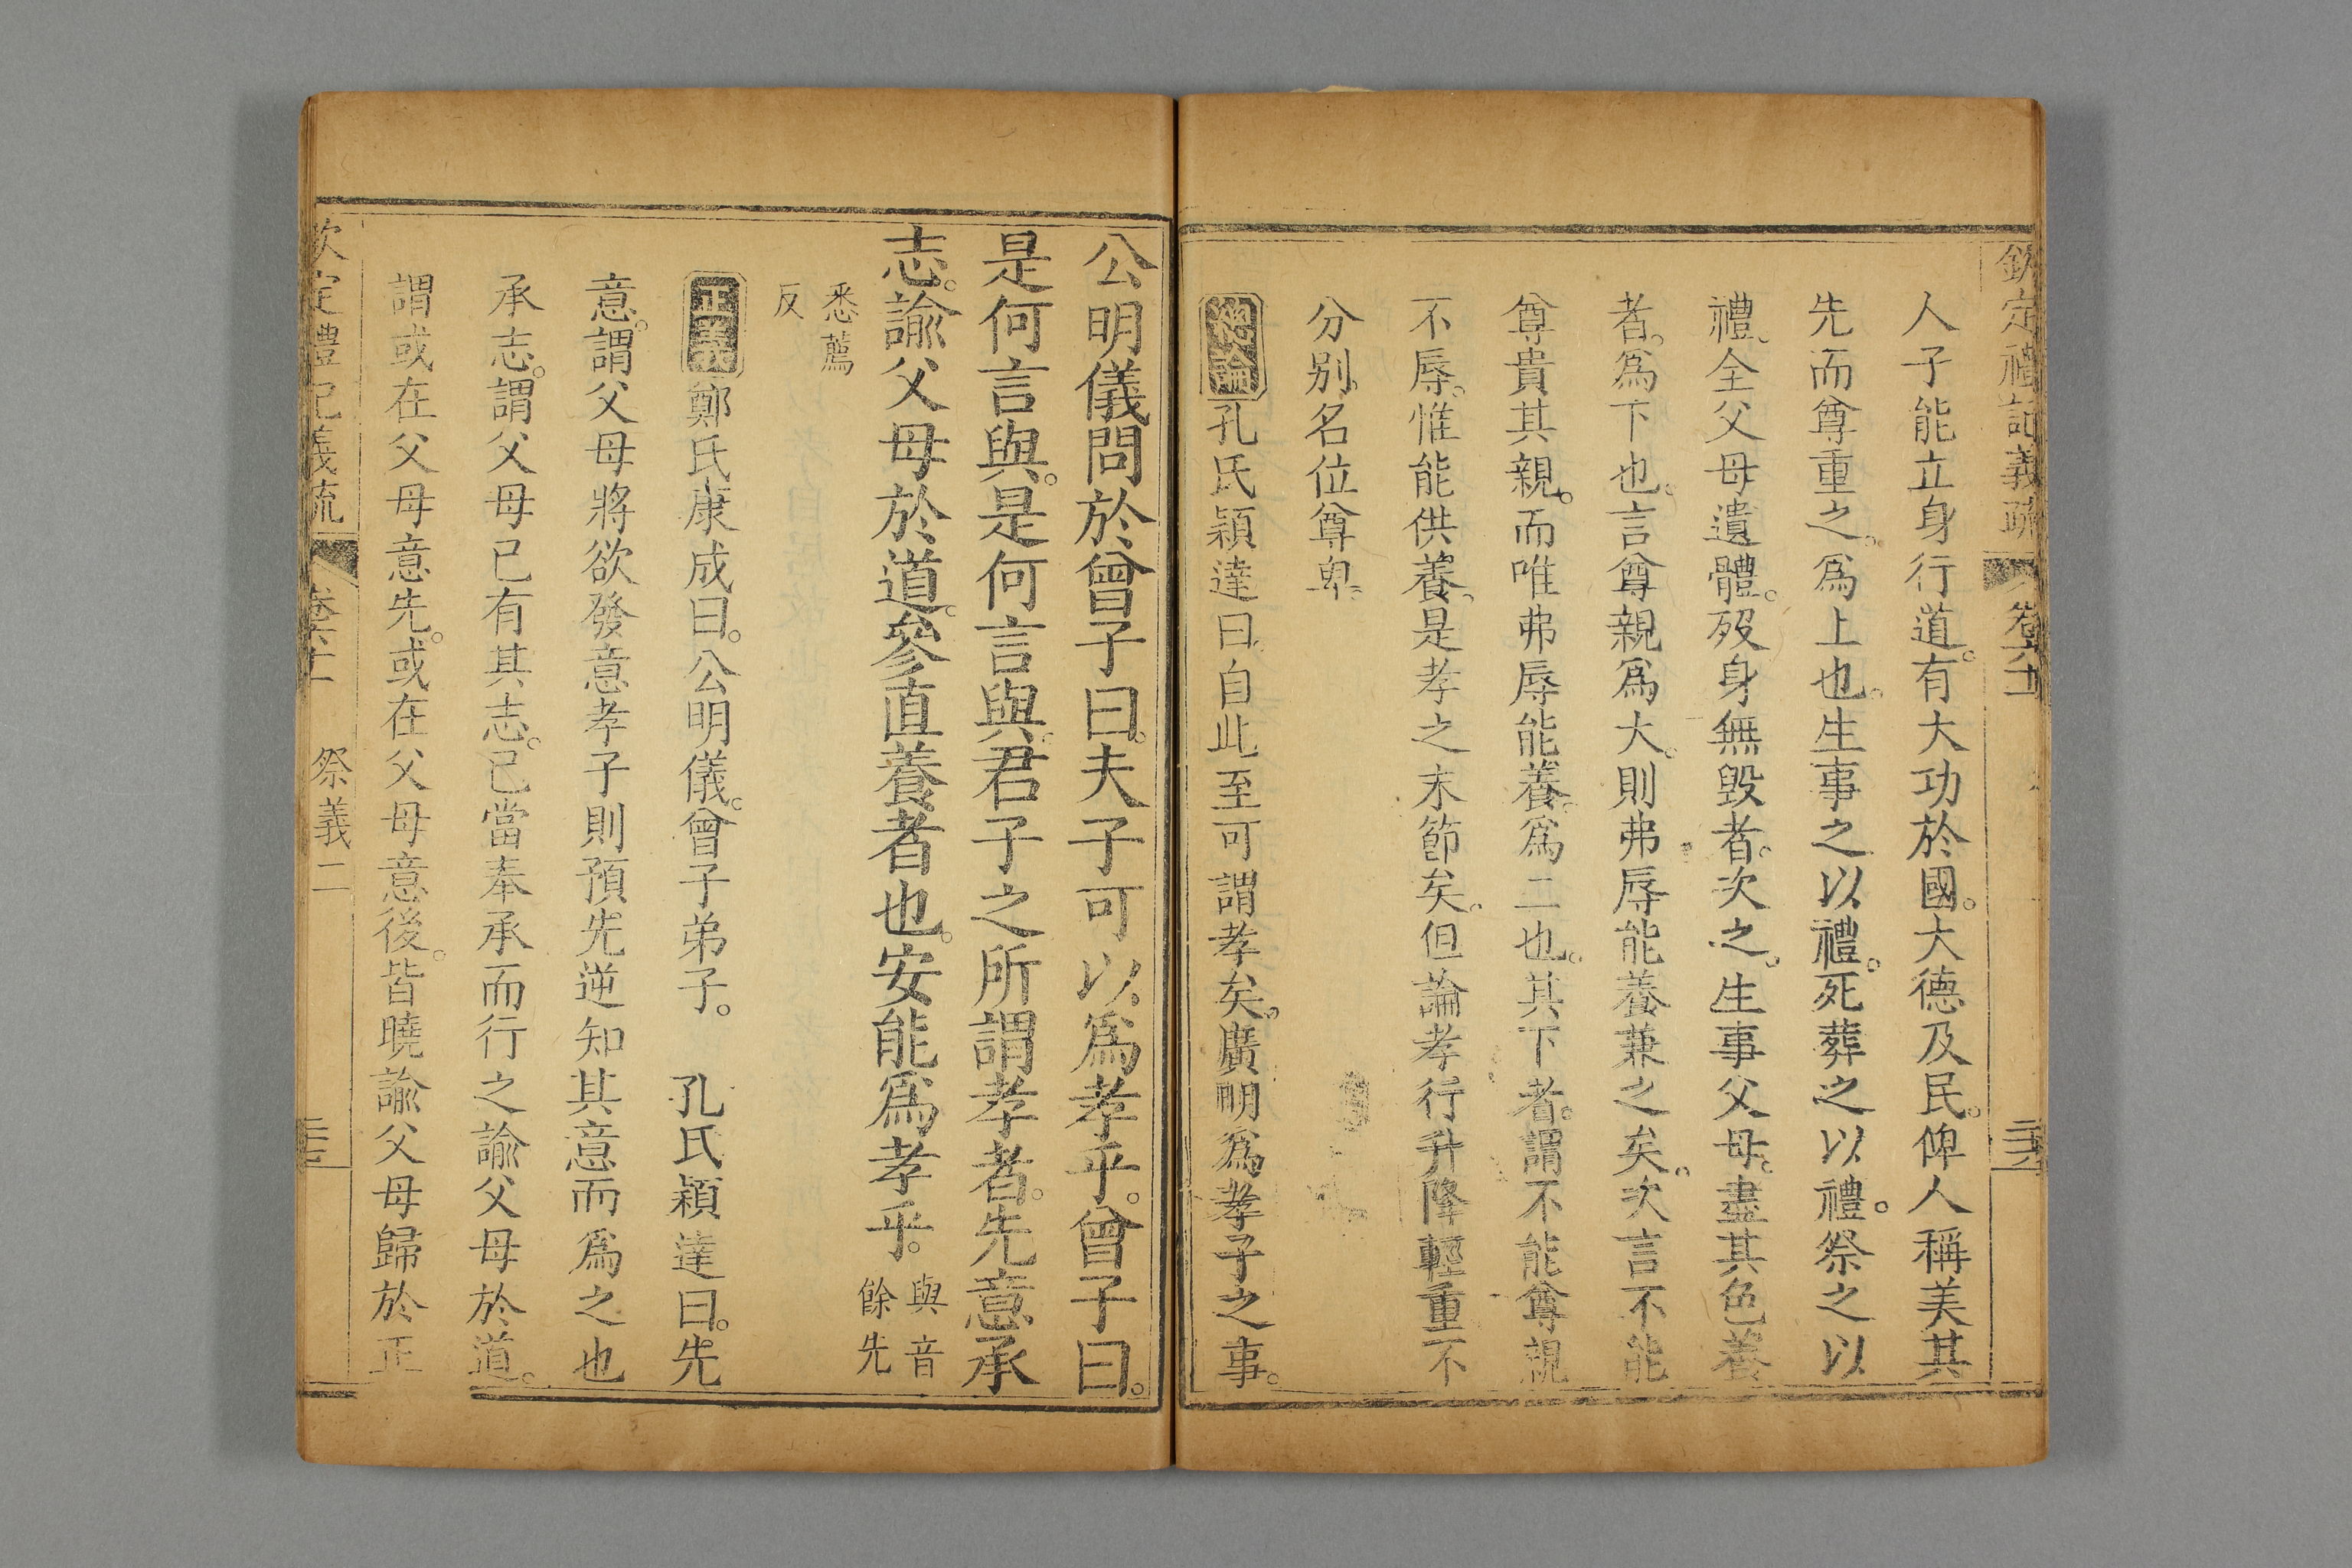 欽定禮記義疏 卷六十一
人子能立身行道。有大功於國。大德及民。俾人稱美其
先而尊重之。爲上也。生事之以禮。死葬之以禮。祭之以
禮、全父母遺體。歿身無毀者。次之。生事父母。盡其色養
者。爲下也。言尊親爲大。則弗辱能養兼之矣。次言不能
尊貴其親。而唯弗辱能養。爲二也。其下者。謂不能尊親
不辱。惟能供養。是孝之末節矣。但論孝行升降輕重不
分別。名位尊卑。
總論 孔氏穎達曰。自此至可謂孝矣。廣明爲孝子之事。
公明儀問於曾子曰。夫子可以爲孝乎。曾子曰。
是何言與。是何言與。君子之所謂孝者。先意承
志。諭父母於道。參直養者也。安能爲孝乎。與音
餘先
悉薦
反
正義 鄭氏康成曰。公明儀。曾子弟子。 孔氏穎達曰。先
意。謂父母將欲發意孝子則預先逆知其意而爲之也
承志。謂父母已有其志。已當奉承而行之諭父母於道。
謂或在父母意先。或在父母意後。皆曉諭父母歸於正
欽定禮記義疏 卷六十一 祭義二